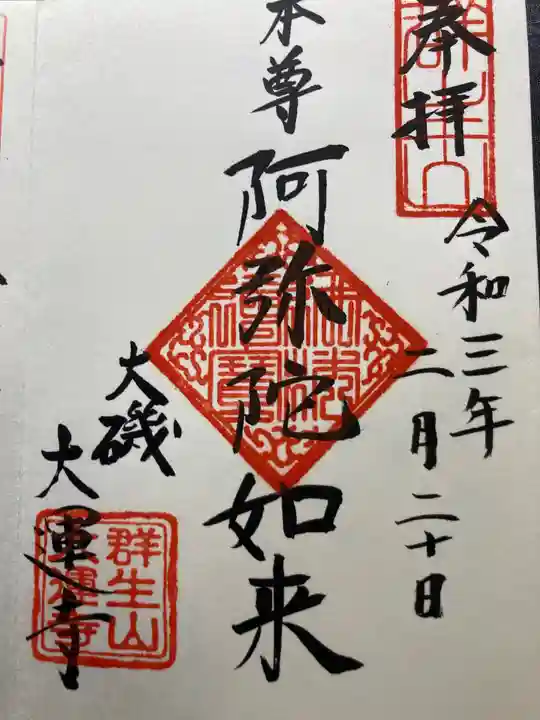 奉拝
令和三年
二月二十日
本尊
阿弥陀如来
大磯
大運寺
群生山
大運寺